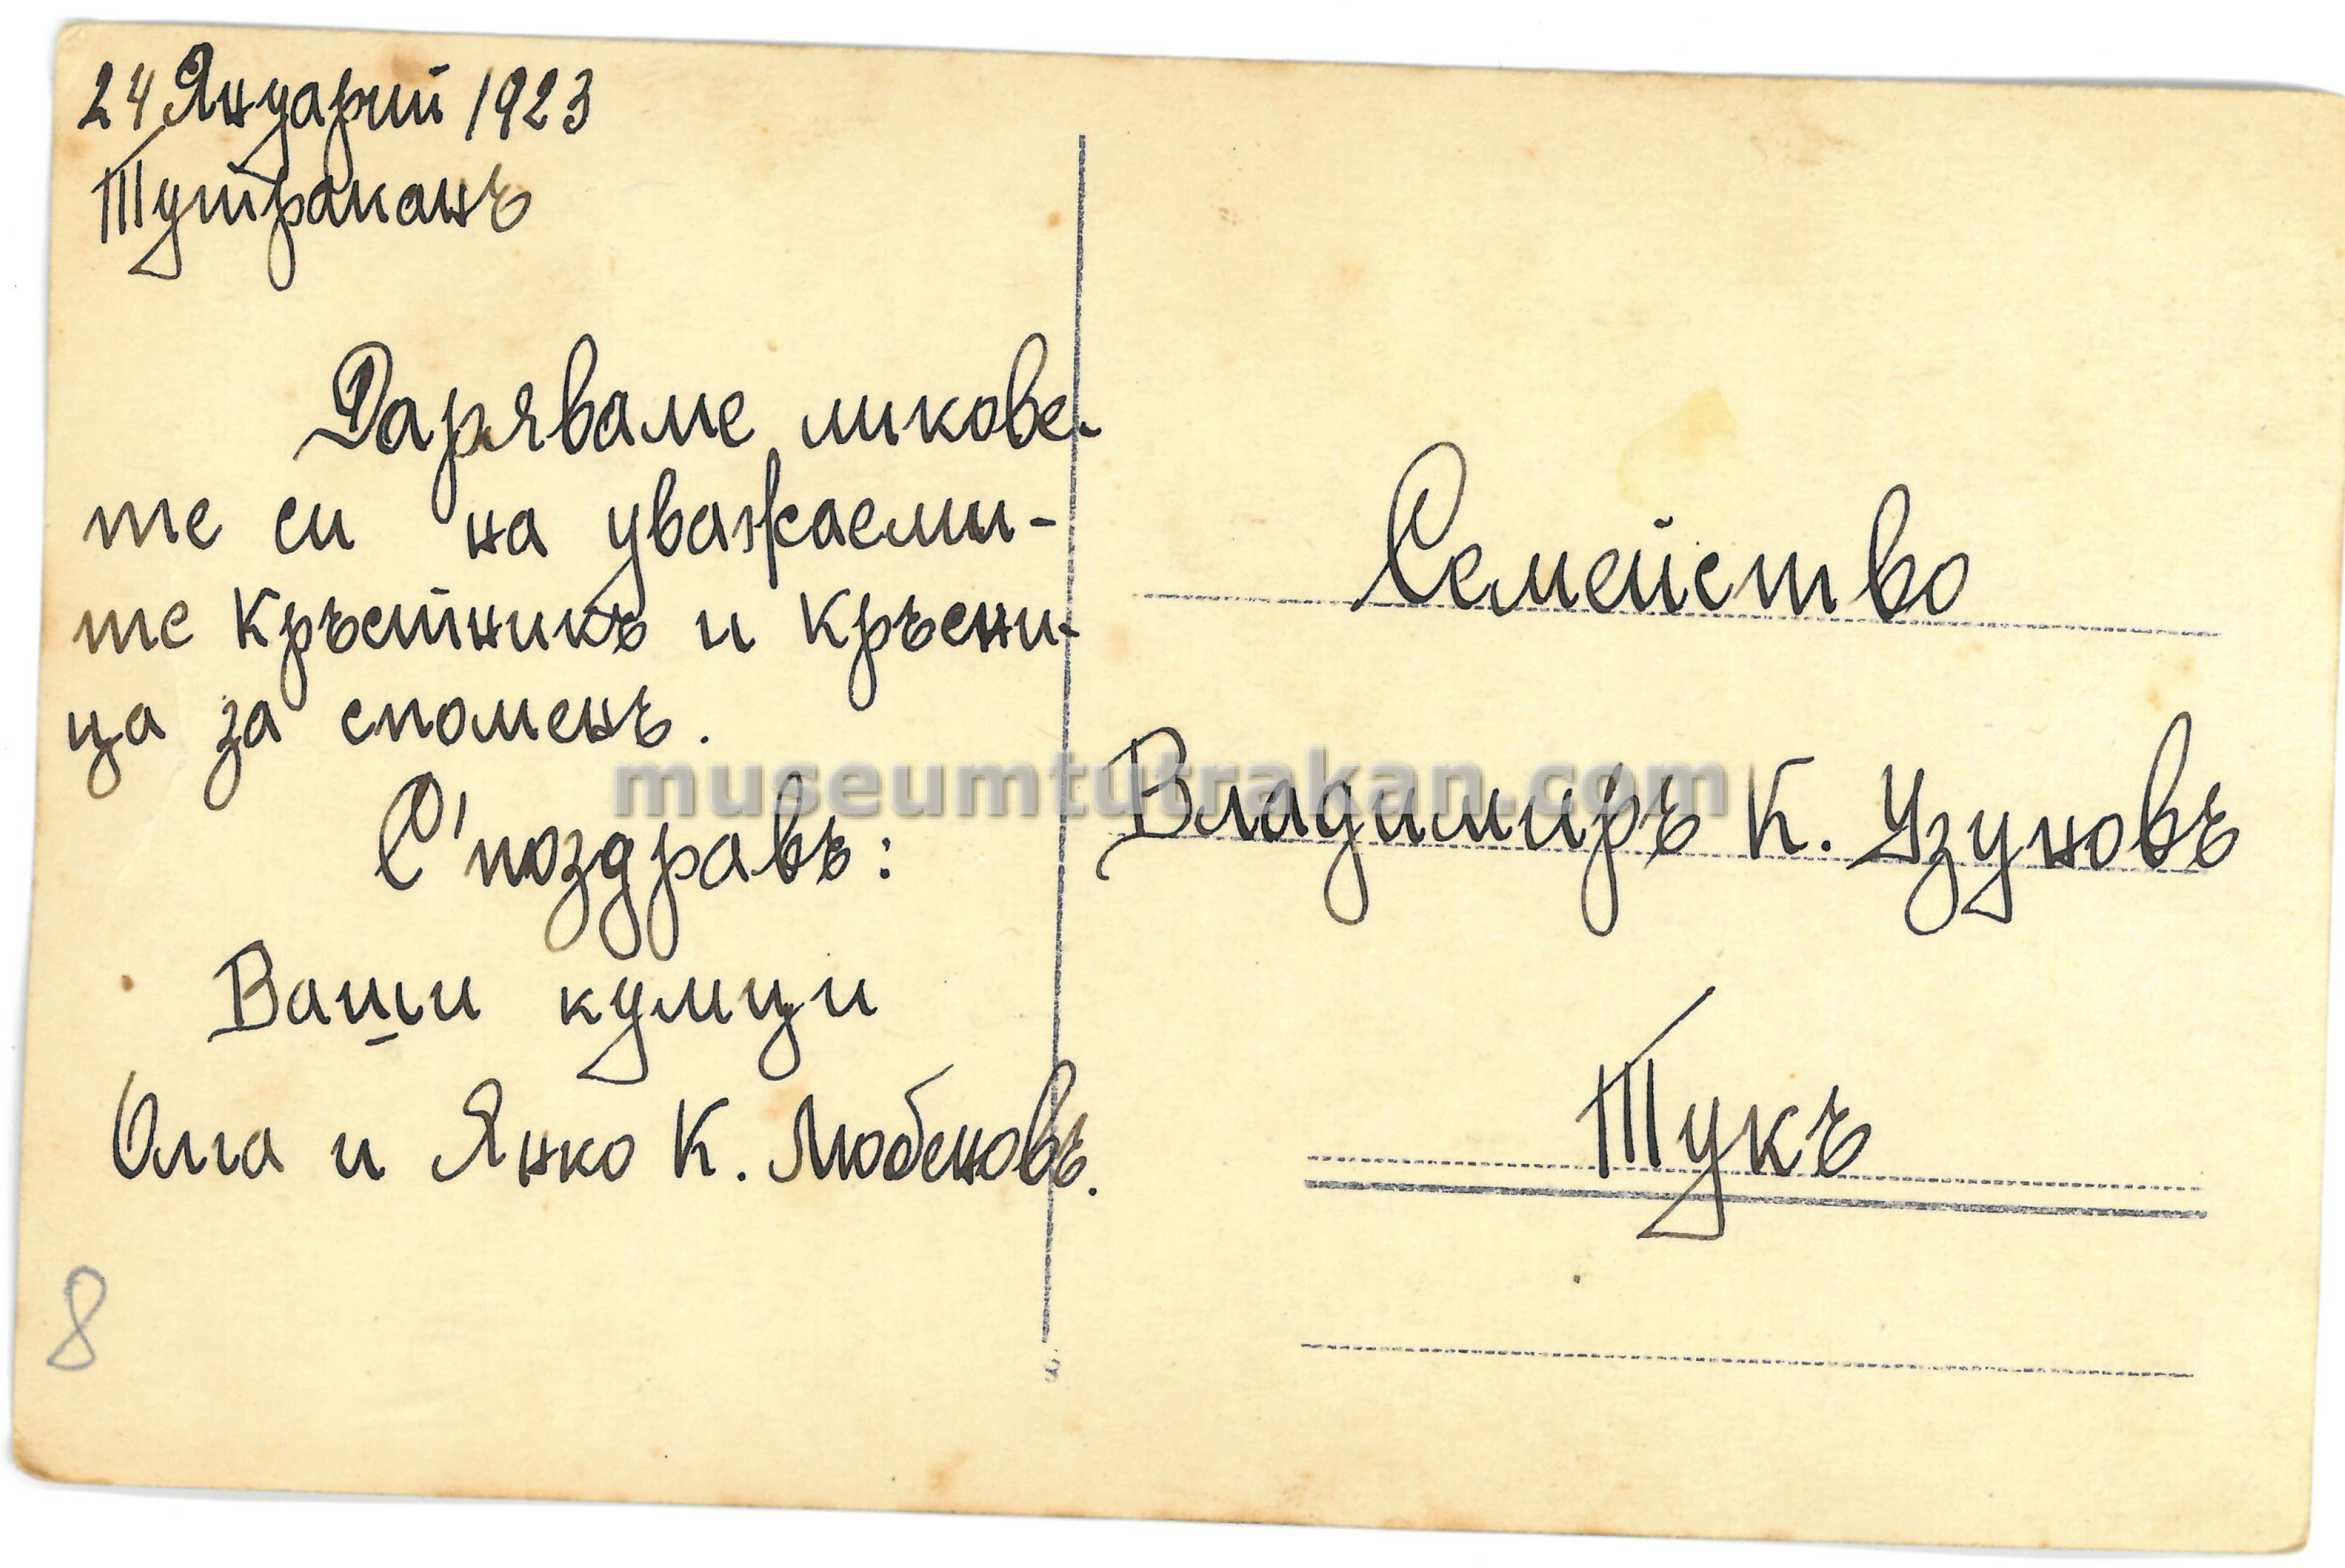 24 Януарий 1923
Тутраканъ
Даряваме ликове-
те си на уважаеми-
те Кръстникъ и Кръсни-
ца за споменъ.
С' поздравъ:
Ваши кумци
Олга и Янко К. Любеновъ.
8
Семейство
Владимиръ К. Узуновъ
Тукъ
museumtutrakan.com